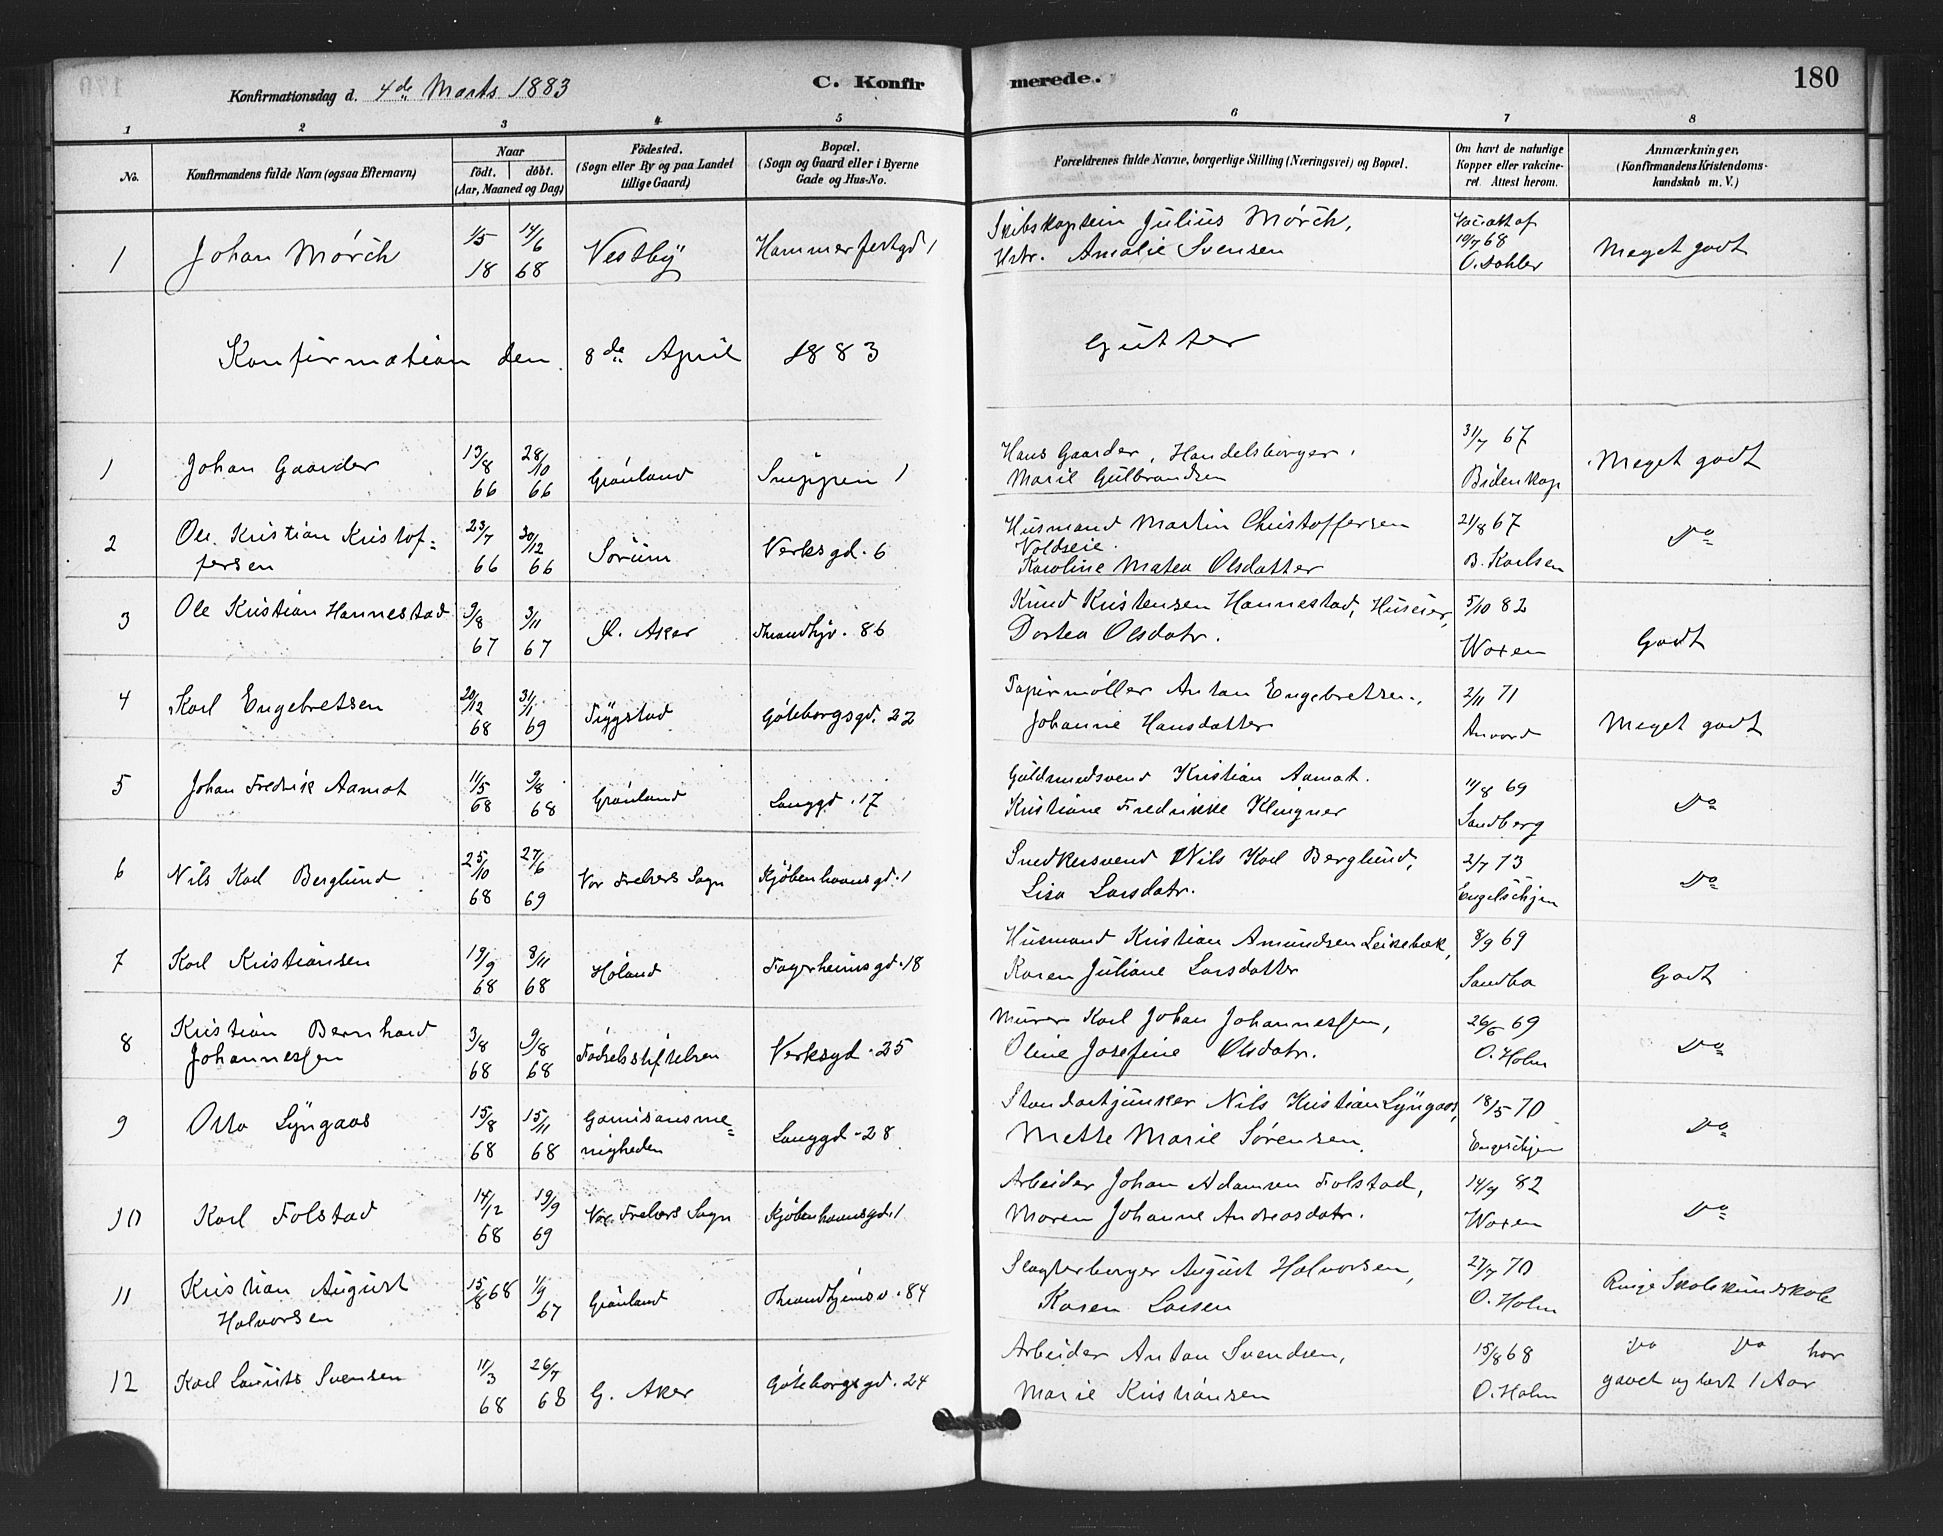 Konfirmationsdag d. 4de Marts 1883 C. Konfir merede. 180
1 2 3 4 5 6 7 8
No. Konfirmandens fulde Navn (ogsaa Efternavn) Naar født. døbt. (Aar, Maaned og Dag) Fødested. (Sogn eller By og paa Landet tillige Gaard) Bopæl. (Sogn og Gaard eller i Byerne Gade og Hus-No. Forældrenes fulde Navne, borgerlige Stilling (Næringsvei) og Bopæl. Om havt de naturlige Kopper eller vakcineret. Attest herom. Anmærkninger. (Konfirmandens Kristendomskundskab m. V.)
1 Johan Mørch 1/5 18 14/6 68 Vestby Hammerfestgd 1 Skibskaptein Julius Mørch, Hstr. Amalie Svensen 19/7 68 Meget godt
Konfirmation den 8de April 1883 Gutter
1 Johan Gaarder 13/8 66 28/10 66 Grønland Snippen 1 Hans Gaarder, Handelsborger. Marie Gulbrandsen 31/7 67 Bidenkap Meget godt
2 Ole Kristian Kristoffersen 23/7 66 30/12 66 Sørum Verksgd. 6 Husmand Martin Christoffersen Voldseie. Karoline Matea Olsdatter 21/8 67 B. Karlsen Do
3 Ole Kristian Hannestad 9/8 67 3/11 67 Ø. Aker Throndhjv. 86 Knud Kristensen Hannestad, Huseier, Dortea Olsdatr. 5/10 82 Woxen Godt
4 Karl Engebretsen 20/12 68 31/1 69 Trygstad Gøteborgsgd. 22 Papirmøller Anton Engebretsen, Johanne Hansdatter 2/11 71 Meget godt
5 Johan Fredrik Aamot 11/5 68 9/8 68 Grønland Langgd. 17 Guldsmedsvend Kristian Aamot. Kristiane Fredrikke Klingner 11/8 69 Sandberg Do
6 Nils Karl Berglund 25/10 68 27/6 69 Vor Frelsers Sogn Kjøbenhavnsgd. 1 Snedkersvend Nils Karl Berglund, Lisa Larsdatr. 2/7 73 Engelschjen Do
7 Karl Kristiansen 19/9 68 8/11 68 Høland Fagerheimsgd. 18 Husmand Kristian Amundsen Leikebæk, Karen Juliane Larsdatter 8/9 69 Godt
8 Kristian Bernhard Johannessen 3/8 68 9/8 68 Fødselsstiftelsen Verksgd. 25 Murer Karl Johan Johannessen, Oline Josefine Olsdatr. 26/6 69 O. Holm Do
9 Otto Lyngaas 15/8 68 15/11 68 Garnisonsmenigheden Langgd. 28 Standartjunker Nils Kristian Lyngaas, Mette Marie Sørensen 18/5 70 Engelschjen Do
10 Karl Folstad 14/12 68 19/9 69 Vor Frelsers Sogn Kjøbenhavnsgd. 1 Arbeider Johan Adamsen Folstad, Maren Johanne Andreasdatr. 14/9 82 Woxen Do
11 Kristian August Halvorsen 15/8 68 1/9 67 Grønland Throndhjemsv. 84 Slagterborger August Halvorsen, Karen Larsen 27/7 70 O. Holm Ringe Skolekundskab
12 Karl Laurits Svensen 11/3 68 26/7 68 G. Aker Gøteborgsgd. 24 Arbeider Anton Svendsen, Marie Kristiansen 15/8 68 O. Holm Do Do har gaaet og læst 1 Aar